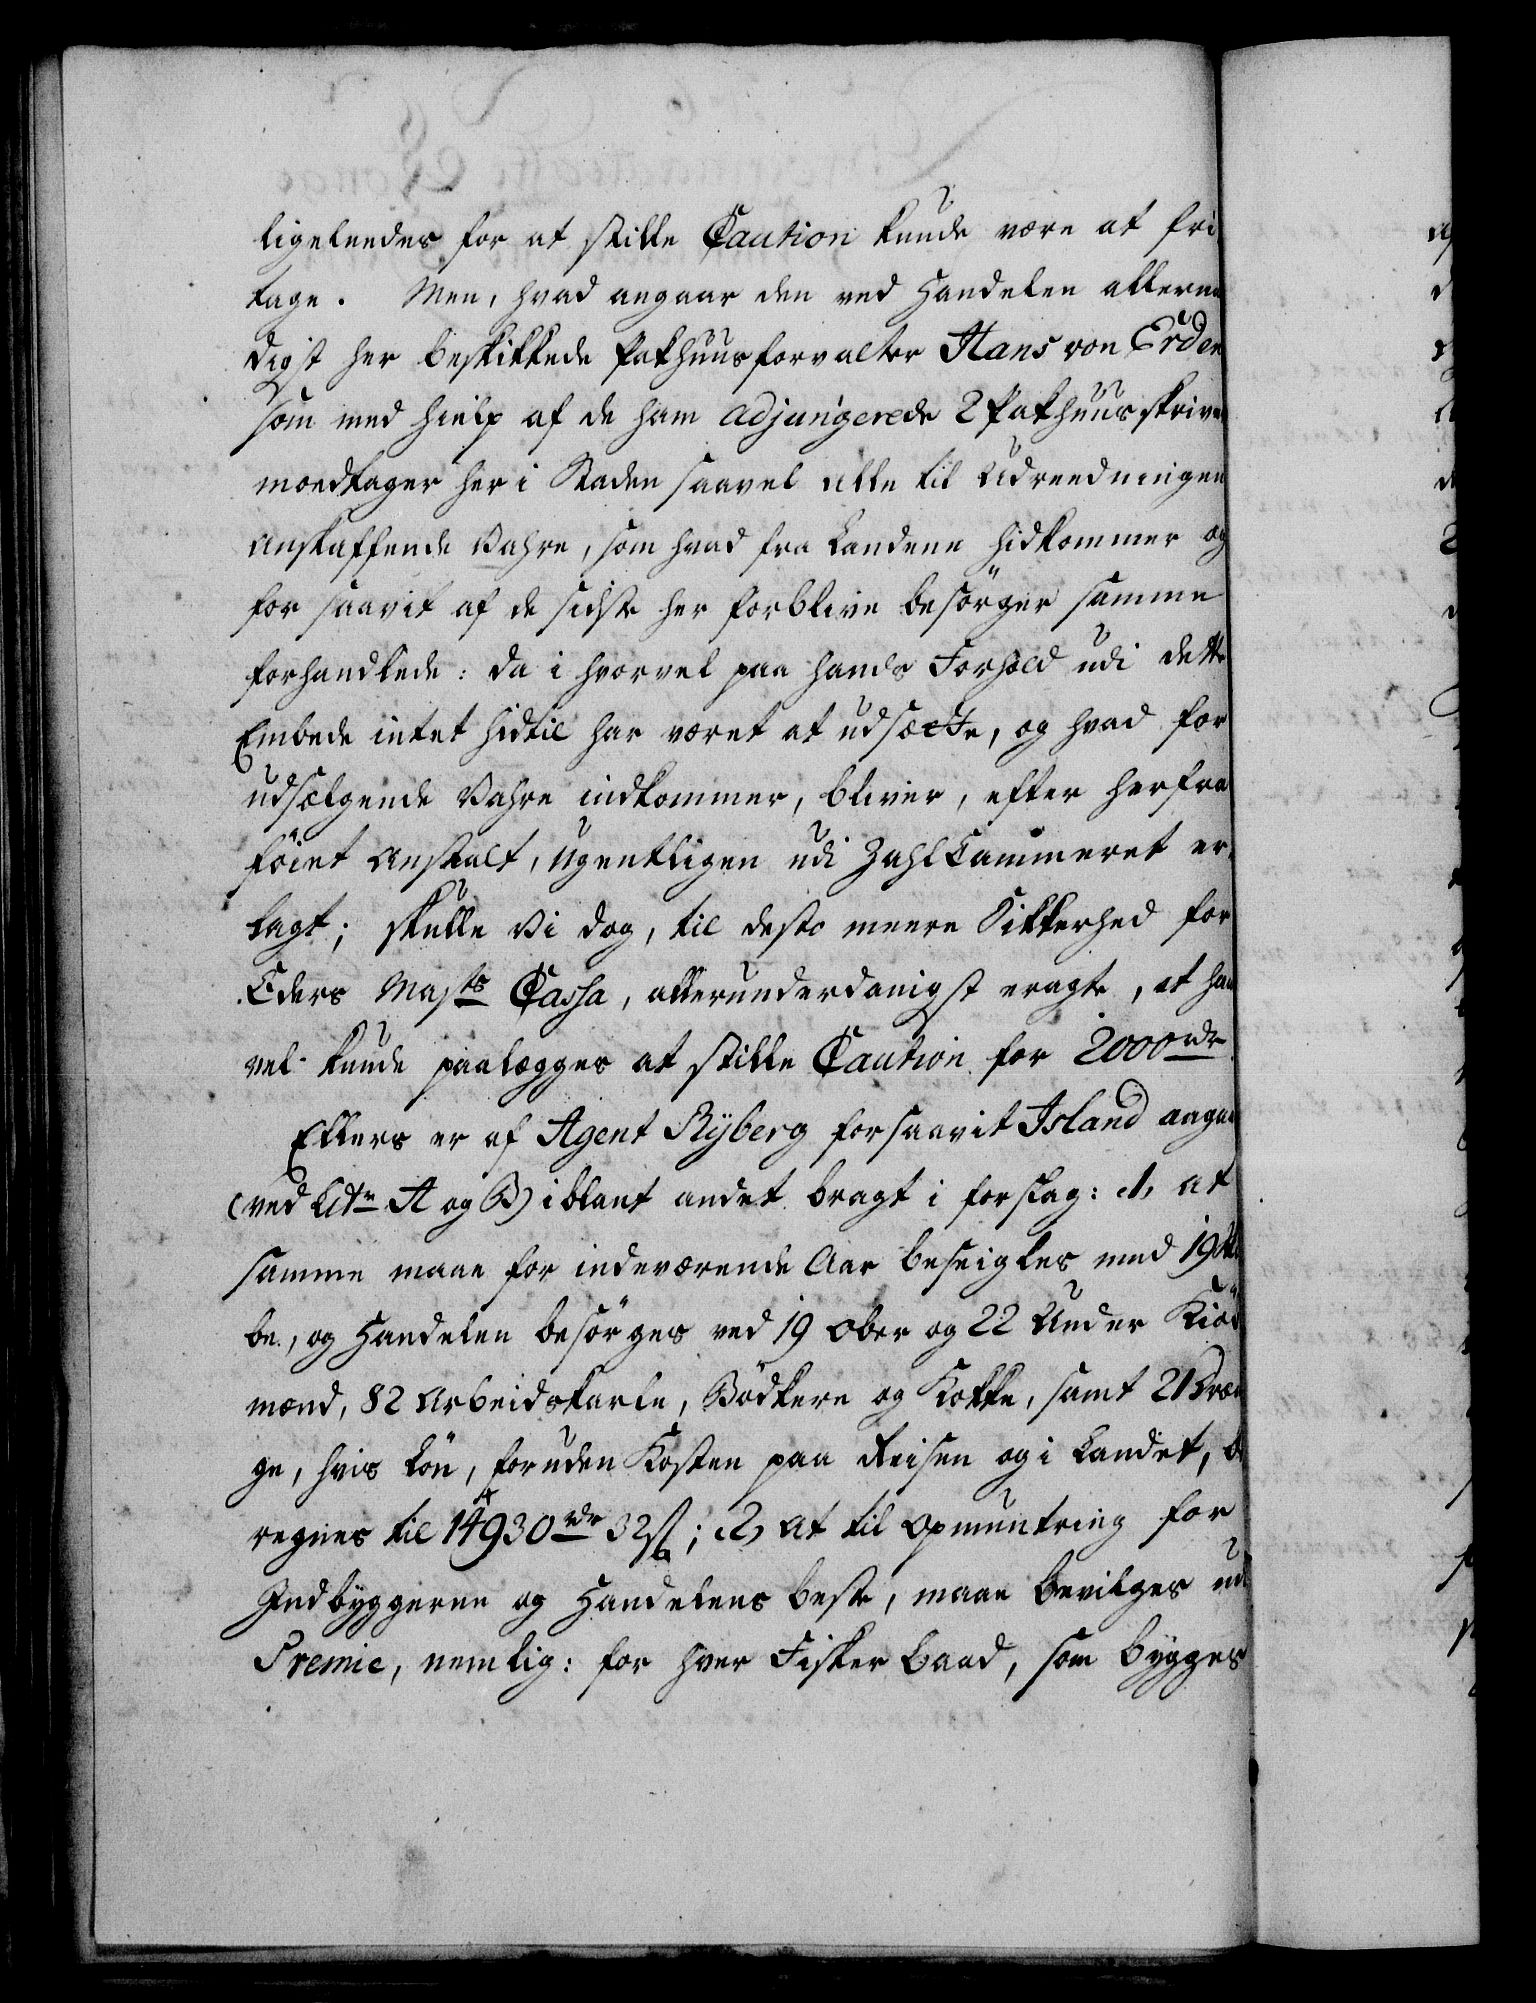 ligeleedes for at stille Caution kunde være at fri
tage. Men, hvad angaar den ved Handelen allerna
digst her beskikkede Pakhuusforvalter Hans von Erden
som med Hielp af de ham adjungerede 2 Pakhuusskrive
modtager her i Staden saavel alle til Udreedningen
anskaffende Vahre, som hvad fra Landene hidkommer og
for saavit af de sidste her forblive besörger samme
forhandlede: da i hvorvel paa hands Forhold udi dette
Embede intet hidtil har været at udsætte, og hvad for
udsælgende Vahre indkommer, bliver, efter herfra
föiet Anstalt, ugentligen udi Zahlkammeret er-
lagt; skulle Vi dog, til desto meere Sikkerhed for
Eders Majts Cassa, allerunderdanigst eragte, at han
vel kunde paalægges at stille Caution for 2000 rdr
Ellers er af Agent Ryberg forsaavit Island angaar
(ved Litr. A og B) iblant andet bragt i forslag: 1, at
samme maae for indeværende Aar beseigles med 19 Ski
be, og Handelen besörges ved 19 Ober og 22 Under Kiöb
mænd, 82 Arbeidskarle, Bödkere og Kokke, samt 21 Dræn
ge, hvis Lön, foruden Kosten paa Reisen og i Landet, be
regnes til 14930 rdr 32 ß; 2, at til Opmuntring for
Indbyggerne og Handelens beste, maae bevilges ud
Premie, nemlig: for hver Fisker Baad, som bygges